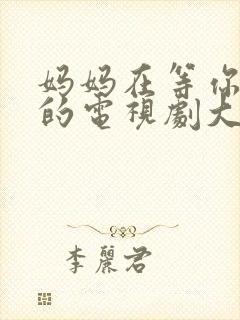 妈妈在等你
的電視劇大
李麗君